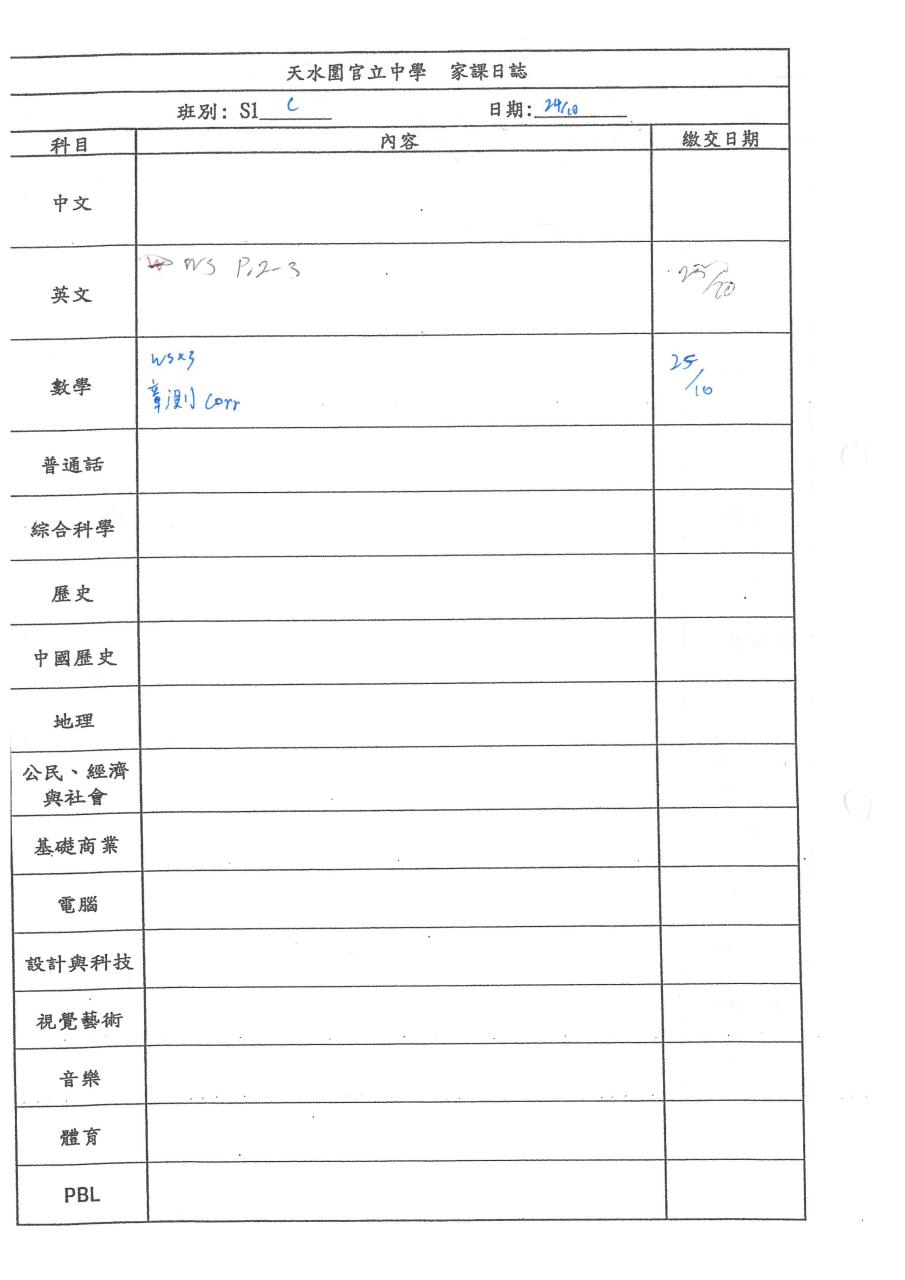 天水圍官立中學 家課日誌
班別: S1 C 日期: 24/10
科目 內容 繳交日期
中文
英文 WS P.2-3 25/10
數學 WS×3 25/10
章測 Corr
普通話
綜合科學
歷史
中國歷史
地理
公民、經濟
與社會
基礎商業
電腦
設計與科技
視覺藝術
音樂
體育
PBL